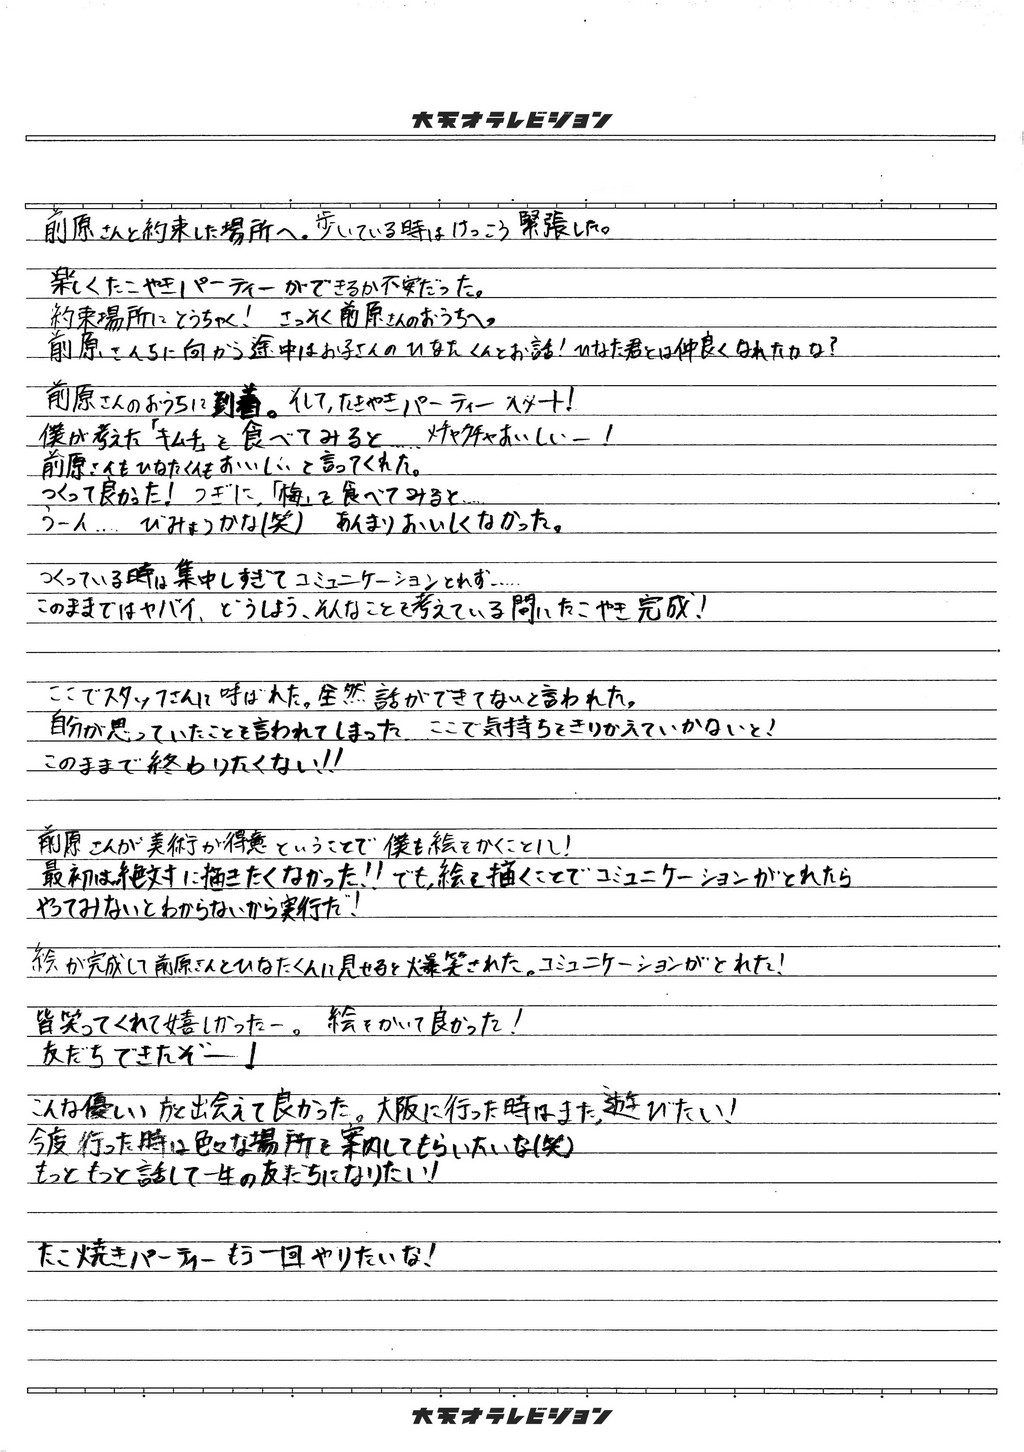 大天才テレビジョン
前原さんと約束した場所へ。歩いている時はけっこう緊張した。
楽しくたこやきパーティーができるか不安だった。
約束場所にとうちゃく! さっそく前原さんのおうちへ。
前原さんちに向かう途中はお子さんのひなたくんとお話!ひなた君とは仲良くなれたかな?
前原さんのおうちに到着。そして,たきやきパーティースタート!
僕が考えた「キムチ」を食べてみると……メチャクチャおいしいー!
前原さんもひなたくんもおいしいと言ってくれた。
つくって良かった! つぎに,「梅」を食べてみると……
うーん…. びみょうかな(笑) あんまりおいしくなかった。
つくっている時は集中しすぎてコミュニケーションとれず……
このままではヤバイ、どうしよう、そんなことを考えている間にたこやき完成!
ここでスタッフさんに呼ばれた。全然話ができてないと言われた。
自分が思っていたことを言われてしまった…ここで気持ちをきりかえていかないと!
このままで終わりたくない!!
前原さんが美術が得意ということで僕も絵をかくことに!
最初は絶対に描きたくなかった!!でも,絵を描くことでコミュニケーションがとれたら
やってみないとわからないから実行だ!
絵が完成して前原さんとひなたくんに見せると爆笑された。コミュニケーションがとれた!
皆笑ってくれて嬉しかったー。 絵をかいて良かった!
友だちできたぞー!
こんな優しい方と出会えて良かった。大阪に行った時はまた,遊びたい!
今度行った時は色々な場所を案内してもらいたいな(笑)
もっともっと話して一生の友だちになりたい!
たこ焼きパーティーもう一回やりたいな!
大天才テレビジョン